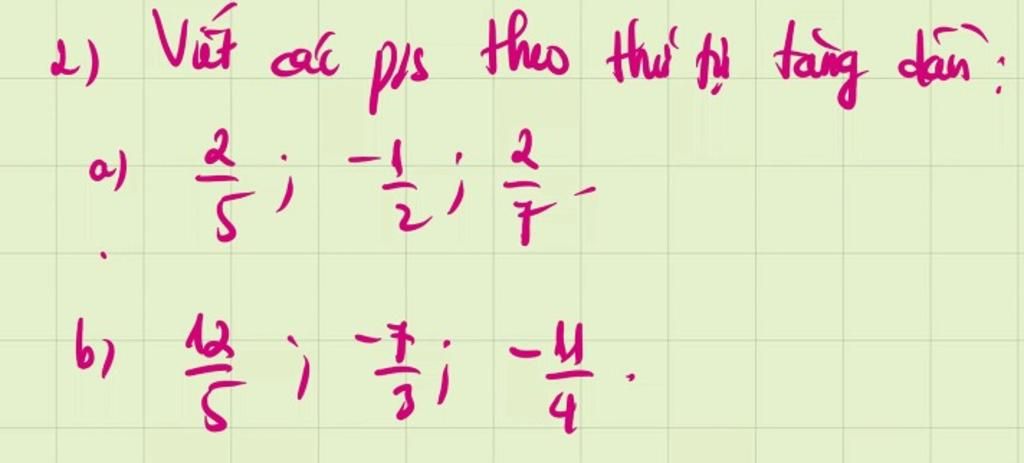 2) Viết các p/s theo thứ tự tăng dần:
a) 2/5 ; -1/2 ; 2/7.
b) 12/5 ; -7/3 ; -11/4.